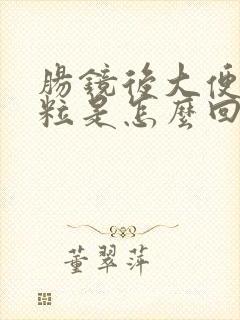 腸鏡後大便
粒是怎麼回
董翠萍